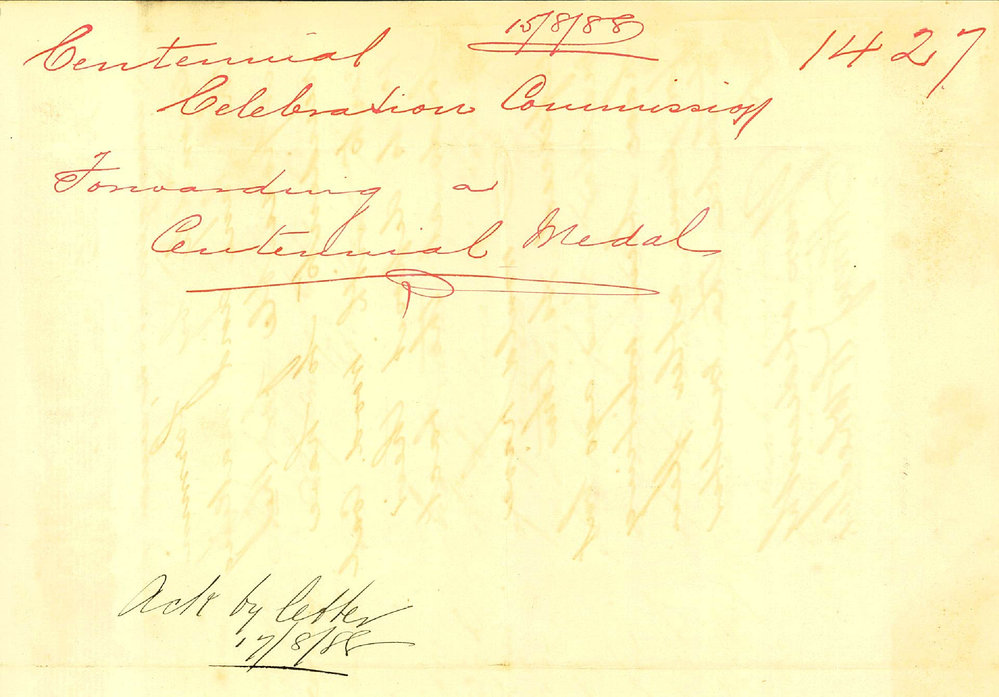 15/8/88
1427
Centennial
Celebration Commission
Forwarding a
Centennial Medal
Ack by letter
17/8/88